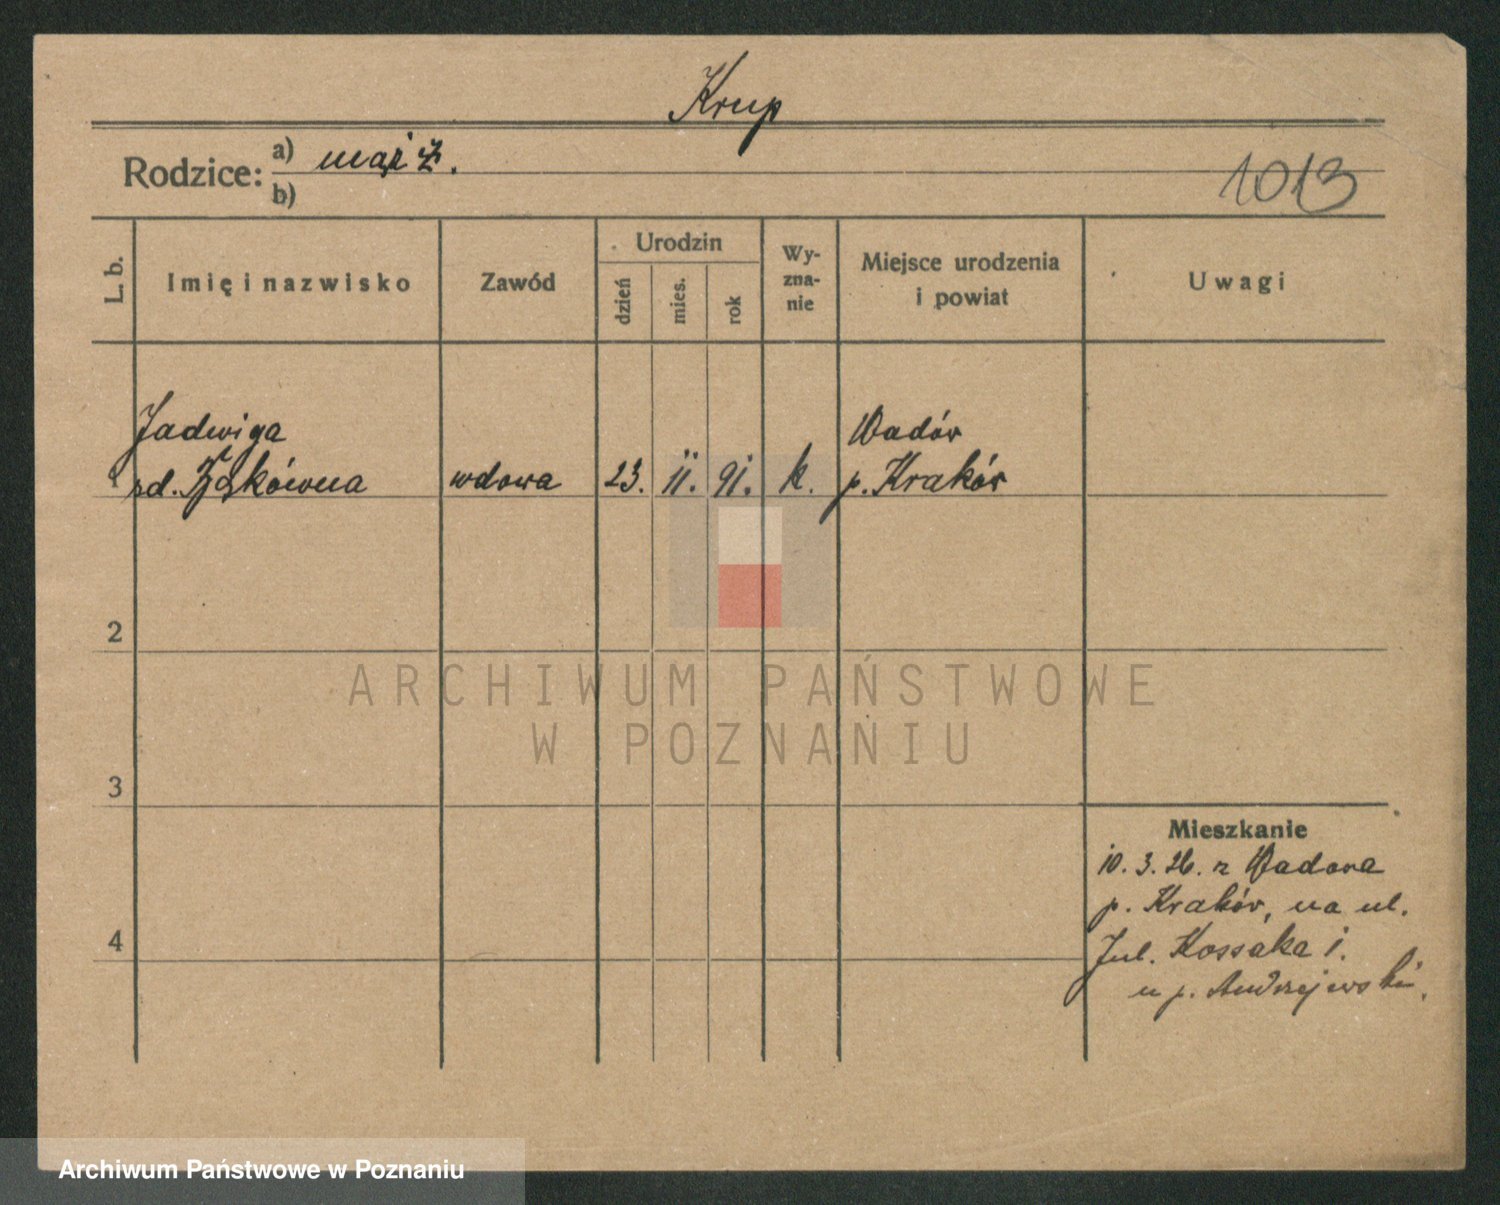 Krup
Rodzice: a) mąż ż.
b)
1013
L. b.
Imię i nazwisko
Zawód
Urodzin
dzień
mies.
rok
Wy-
zna-
nie
Miejsce urodzenia
i powiat
Uwagi
Jadwiga
rd.
wdowa
23. II. 91.
k.
Wadów
p. Kraków
2
3
4
Mieszkanie
10. 3. 26. z Wadowa
p. Kraków, na ul.
Jul. Kossaka 1.
u p. Andrzejewski.
ARCHIWUM PAŃSTWOWE
W POZNANIU
Archiwum Państwowe w Poznaniu